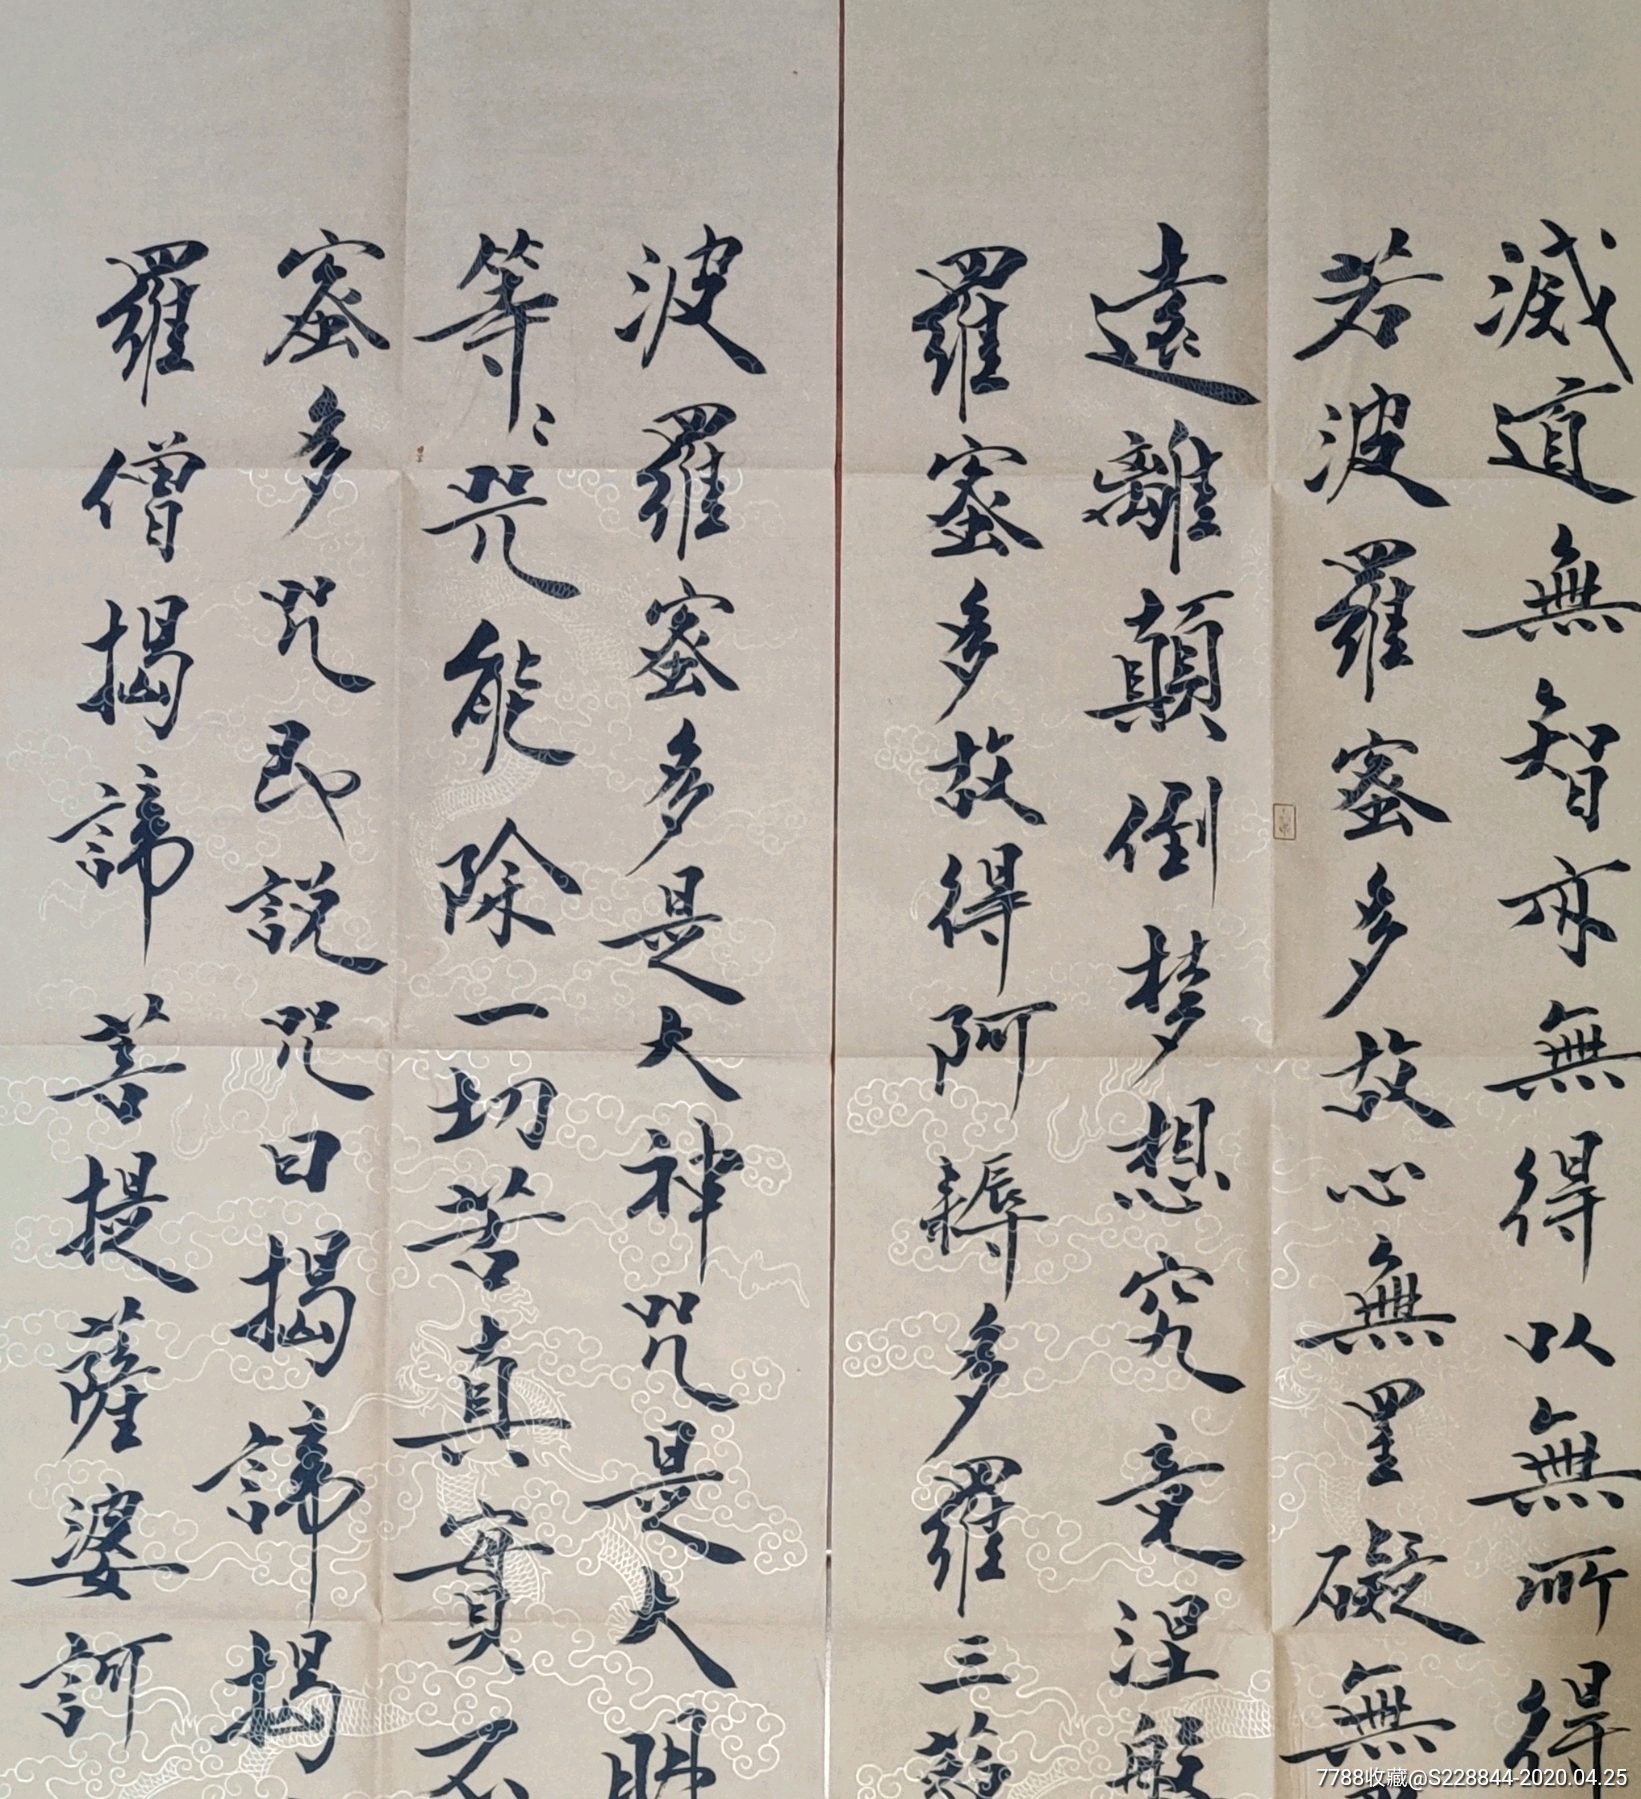 滅道無智亦無得以無所得
若波羅蜜多故心無罣礙無
遠離顛倒梦想究竟涅般
羅蜜多故得阿耨多羅三藐
波羅蜜多是大神咒是大明
等〻咒能除一切苦真實不
蜜多咒即說咒曰揭諦揭
羅僧揭諦菩提薩婆訶
7788收藏@S228844-2020.04.25